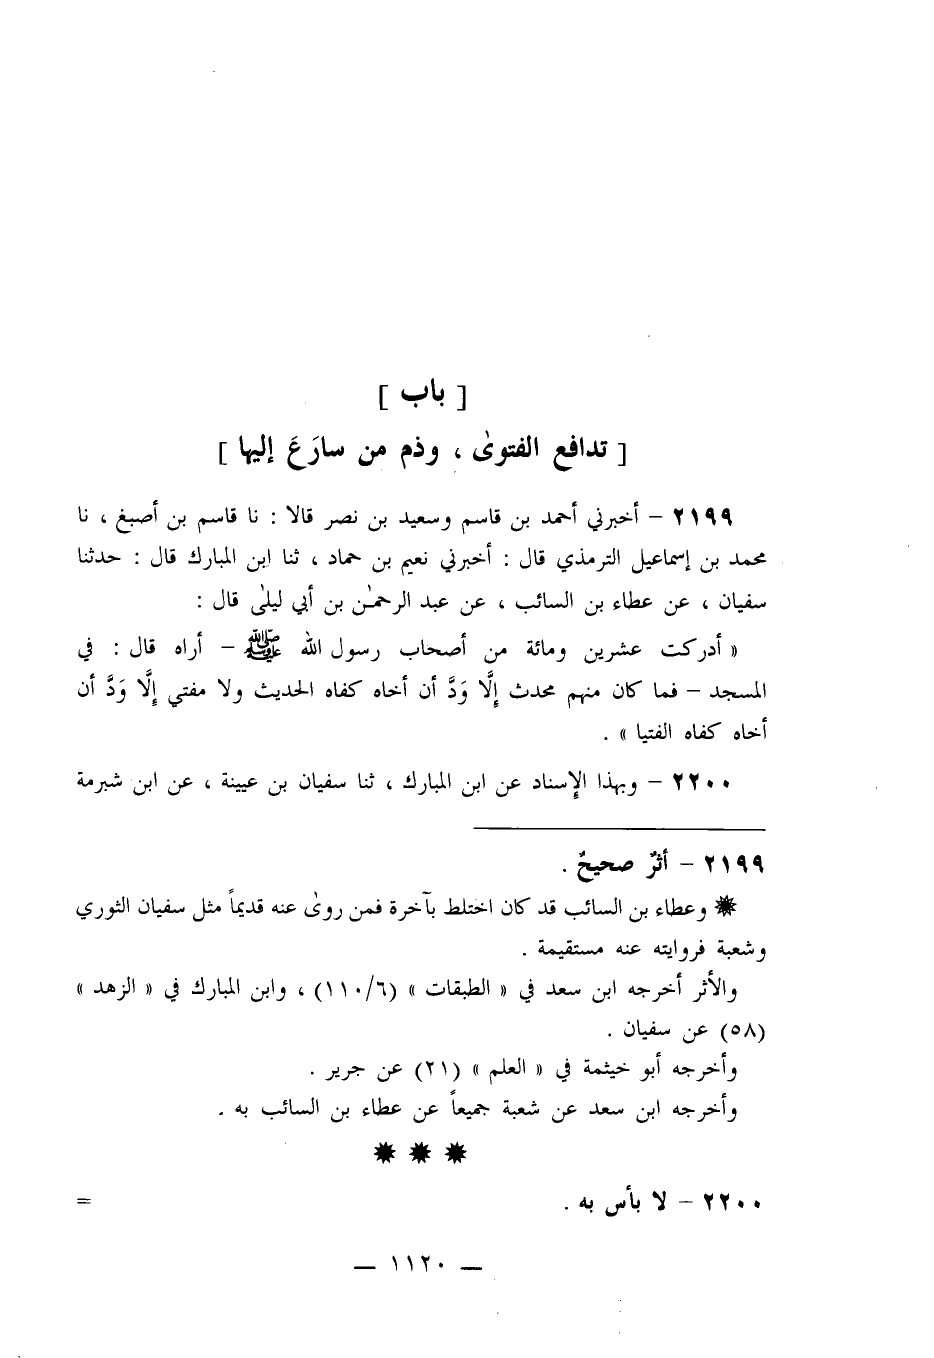 [ باب ]
[ تدافع الفتوىٰ ، وذم من سارَعَ إليها ]
٢١٩٩ – أخبرني أحمد بن قاسم وسعيد بن نصر قالا : نا قاسم بن أصبغ ، نا
محمد بن إسماعيل الترمذي قال : أخبرني نعيم بن حماد ، ثنا ابن المبارك قال : حدثنا
سفيان ، عن عطاء بن السائب ، عن عبد الرحمـٰن بن أبي ليلىٰ قال :
« أدركت عشرين ومائة من أصحاب رسول الله ﷺ – أراه قال : في
المسجد – فما كان منهم محدث إلَّا وَدَّ أن أخاه كفاه الحديث ولا مفتي إلَّا وَدَّ أن
أخاه كفاه الفتيا » .
٢٢٠٠ – وبهذا الإسناد عن ابن المبارك ، ثنا سفيان بن عيينة ، عن ابن شبرمة
٢١٩٩ – أثرٌ صحيحٌ .
✹ وعطاء بن السائب قد كان اختلط بآخرة فمن روىٰ عنه قديماً مثل سفيان الثوري
وشعبة فروايته عنه مستقيمة .
والأثر أخرجه ابن سعد في « الطبقات » (٦/١١٠) ، وابن المبارك في « الزهد »
(٥٨) عن سفيان .
وأخرجه أبو خيثمة في « العلم » (٢١) عن جرير .
وأخرجه ابن سعد عن شعبة جميعاً عن عطاء بن السائب به .
✹ ✹ ✹
٢٢٠٠ – لا بأس به . =
— ١١٢٠ —